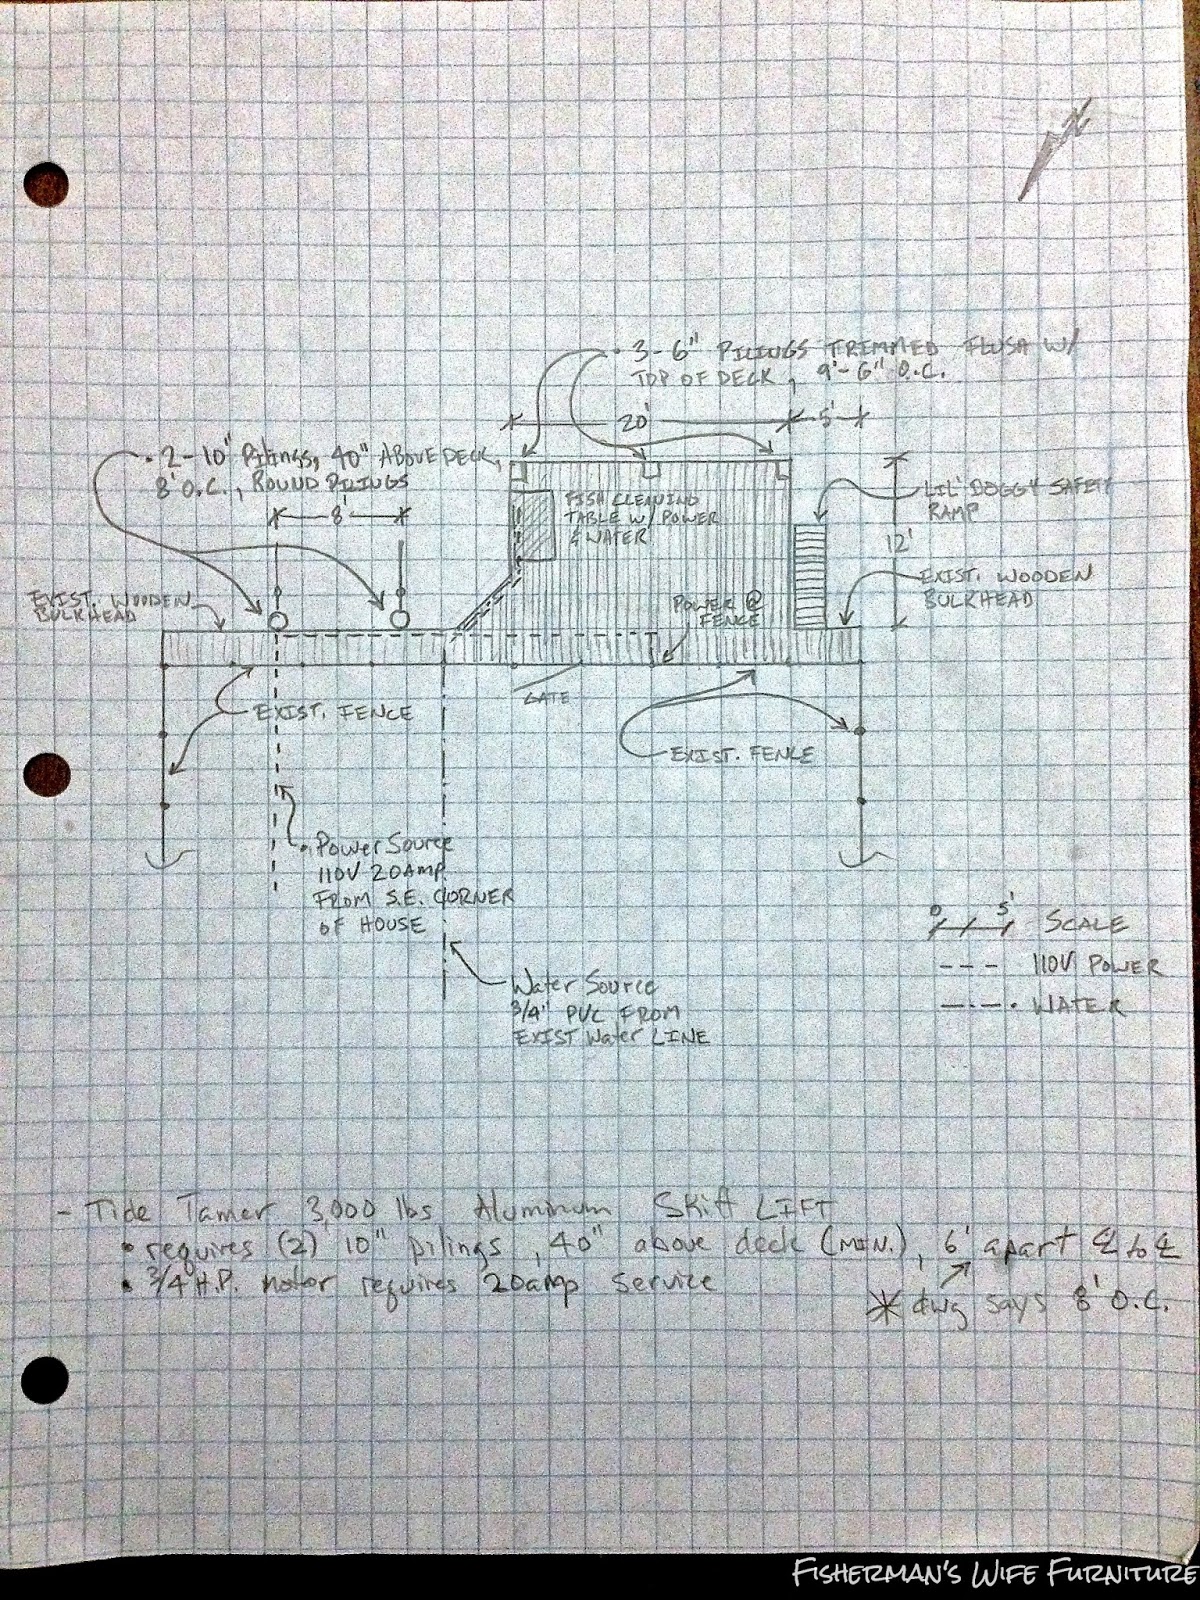 N
• 3-6" PILINGS TRIMMED FLUSH W/
TOP OF DECK, 9'-6" O.C.
20'
5'
• 2-10" Pilings, 40" ABOVE DECK,
8' O.C., ROUND PILINGS
8'
FISH CLEANING
TABLE W/ POWER
& WATER
LIL' DOGGY SAFETY
RAMP
12'
EXIST. WOODEN
BULKHEAD
EXIST. WOODEN
BULKHEAD
POWER @
FENCE
GATE
EXIST. FENCE
EXIST. FENCE
• Power Source
110V 20AMP.
FROM S.E. CORNER
OF HOUSE
0 5' SCALE
110V POWER
WATER
Water Source
3/4" PVC FROM
EXIST Water LINE
- Tide Tamer 3,000 lbs Aluminum Skiff LIFT
• requires (2) 10" pilings, 40" above deck (MIN.), 6' apart ℄ to ℄
• 3/4 H.P. motor requires 20amp service
* dwg says 8' O.C.
FISHERMAN'S WIFE FURNITURE